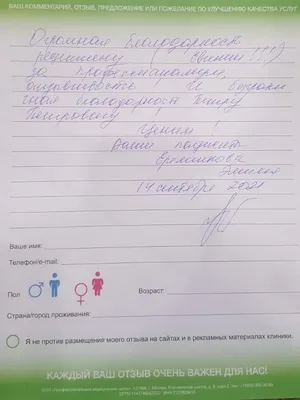 ВАШ КОММЕНТАРИЙ, ОТЗЫВ, ПРЕДЛОЖЕНИЕ ИЛИ ПОЖЕЛАНИЕ ПО УЛУЧШЕНИЮ КАЧЕСТВА УСЛУГ
Огромная благодарность
(Евгении !!!)
за профессионализм,
отзывчивость И
благодарност Петру
Петровичу!
Ценим!
Ваши пациент
Эмилия
14 сентября 2021
Ваше имя:
Телефон/e-mail:
Пол
Возраст:
Страна/город проживания:
Я не против размещения моего отзыва на сайтах и в рекламных материалах клиники.
КАЖДЫЙ ВАШ ОТЗЫВ ОЧЕНЬ ВАЖЕН ДЛЯ НАС!